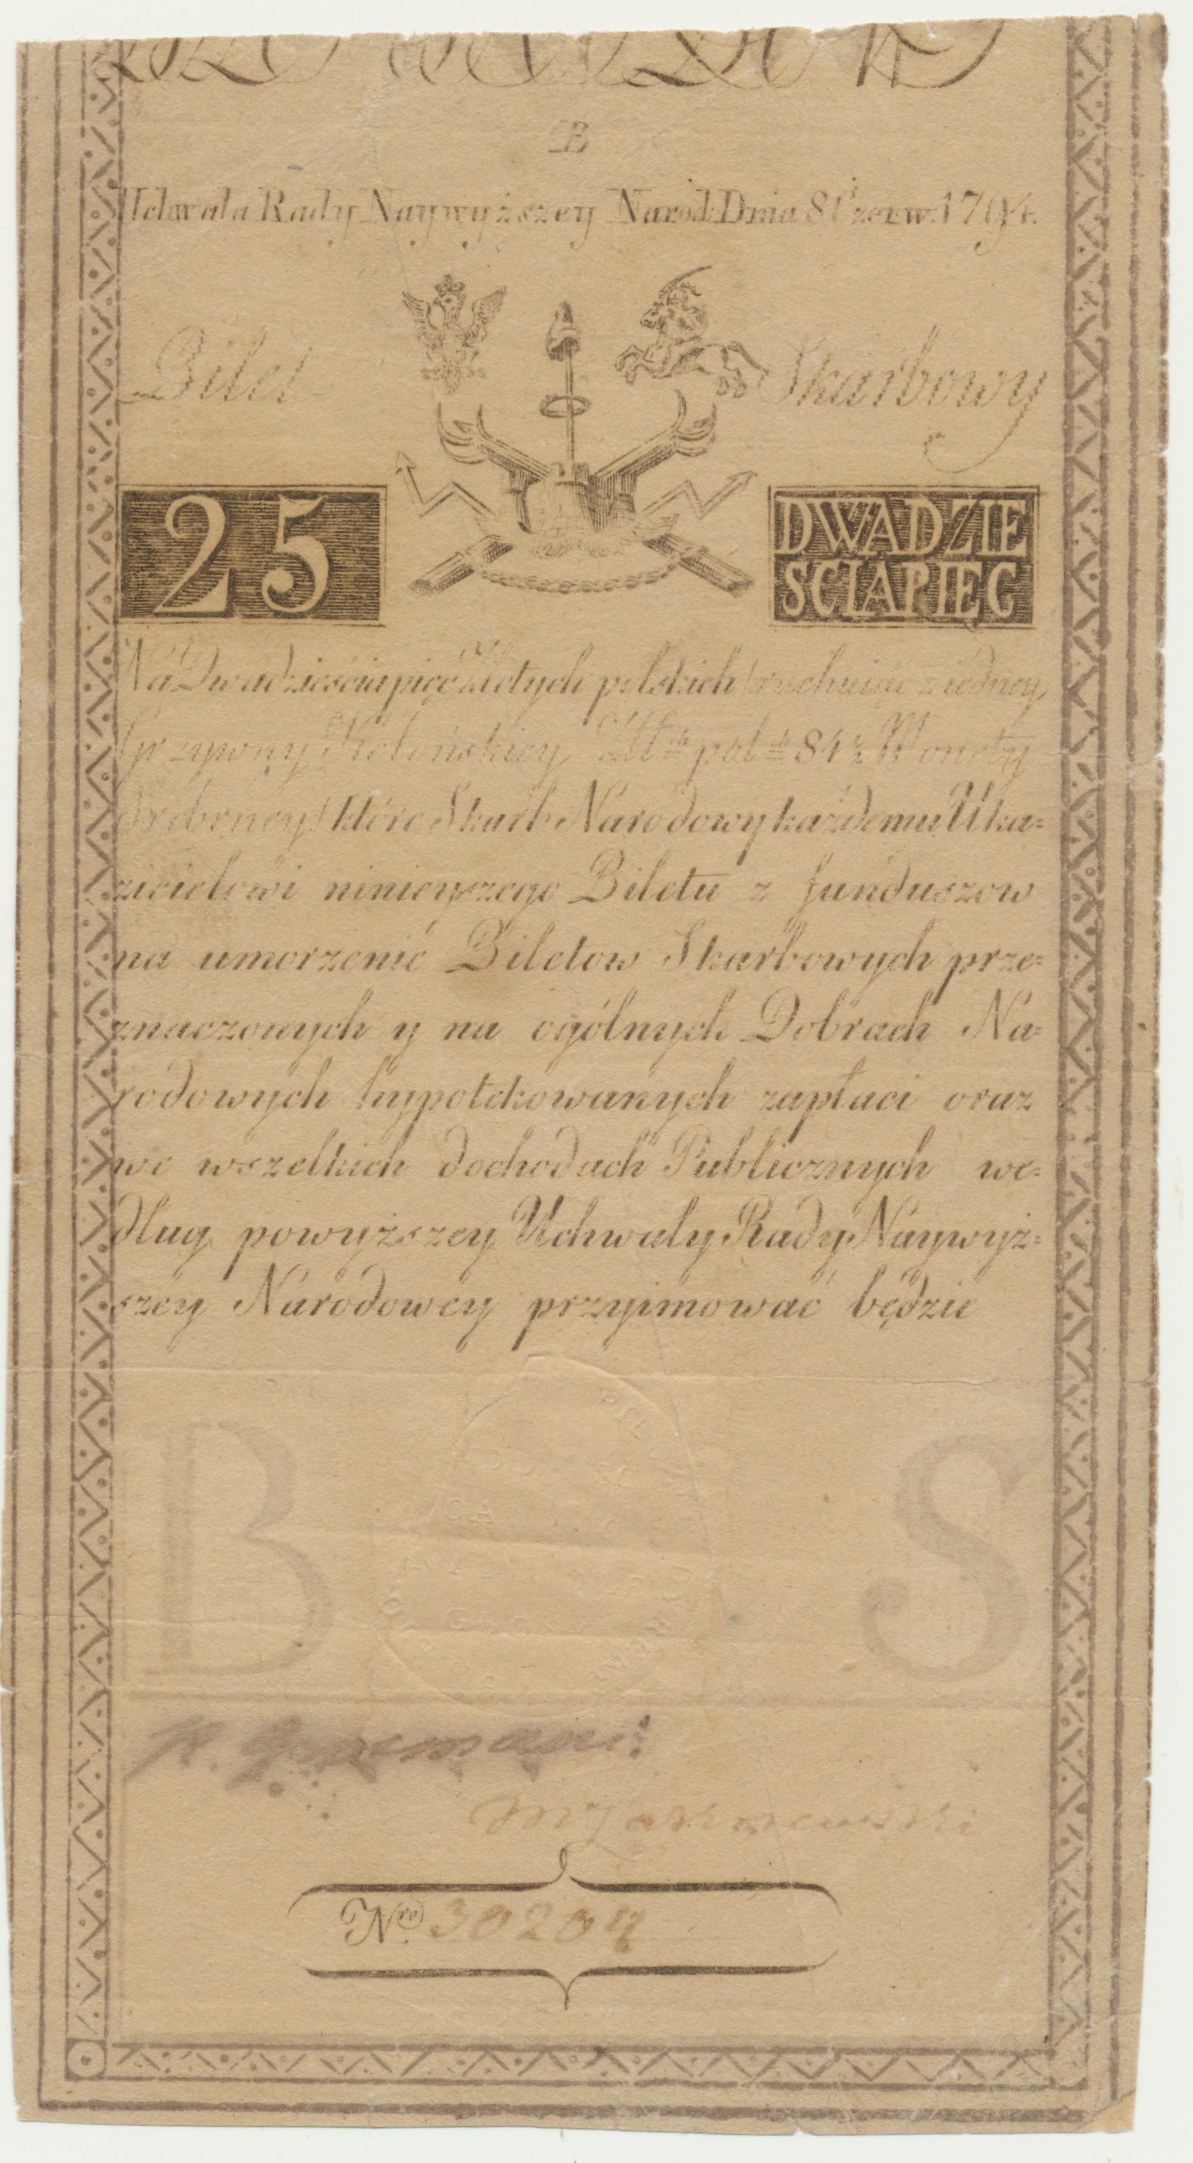 B
Uchwała Rady Naywyższey Narod: Dnia 8 Czerw: 1794.
Bilet Skarbowy
25
DWADZIE
SCIAPIĘC
Na Dwadzieścia pięć Złotych polskich /rachuiąc z iedney
Grzywny Kolońskiey Złt. pol. 84½ Monety
Srebrney/ które Skarb Narodowy każdemu Uka=
zicielowi ninieyszego Biletu z funduszow
na umorzenie Biletow Skarbowych prze=
znaczonych y na ogólnych Dobrach Na=
rodowych hypotekowanych zapłaci oraz
we wszelkich dochodach Publicznych we=
dług powyższey Uchwały Rady Naywyż=
szey Narodowey przyimować będzie
B S
Nro 30204